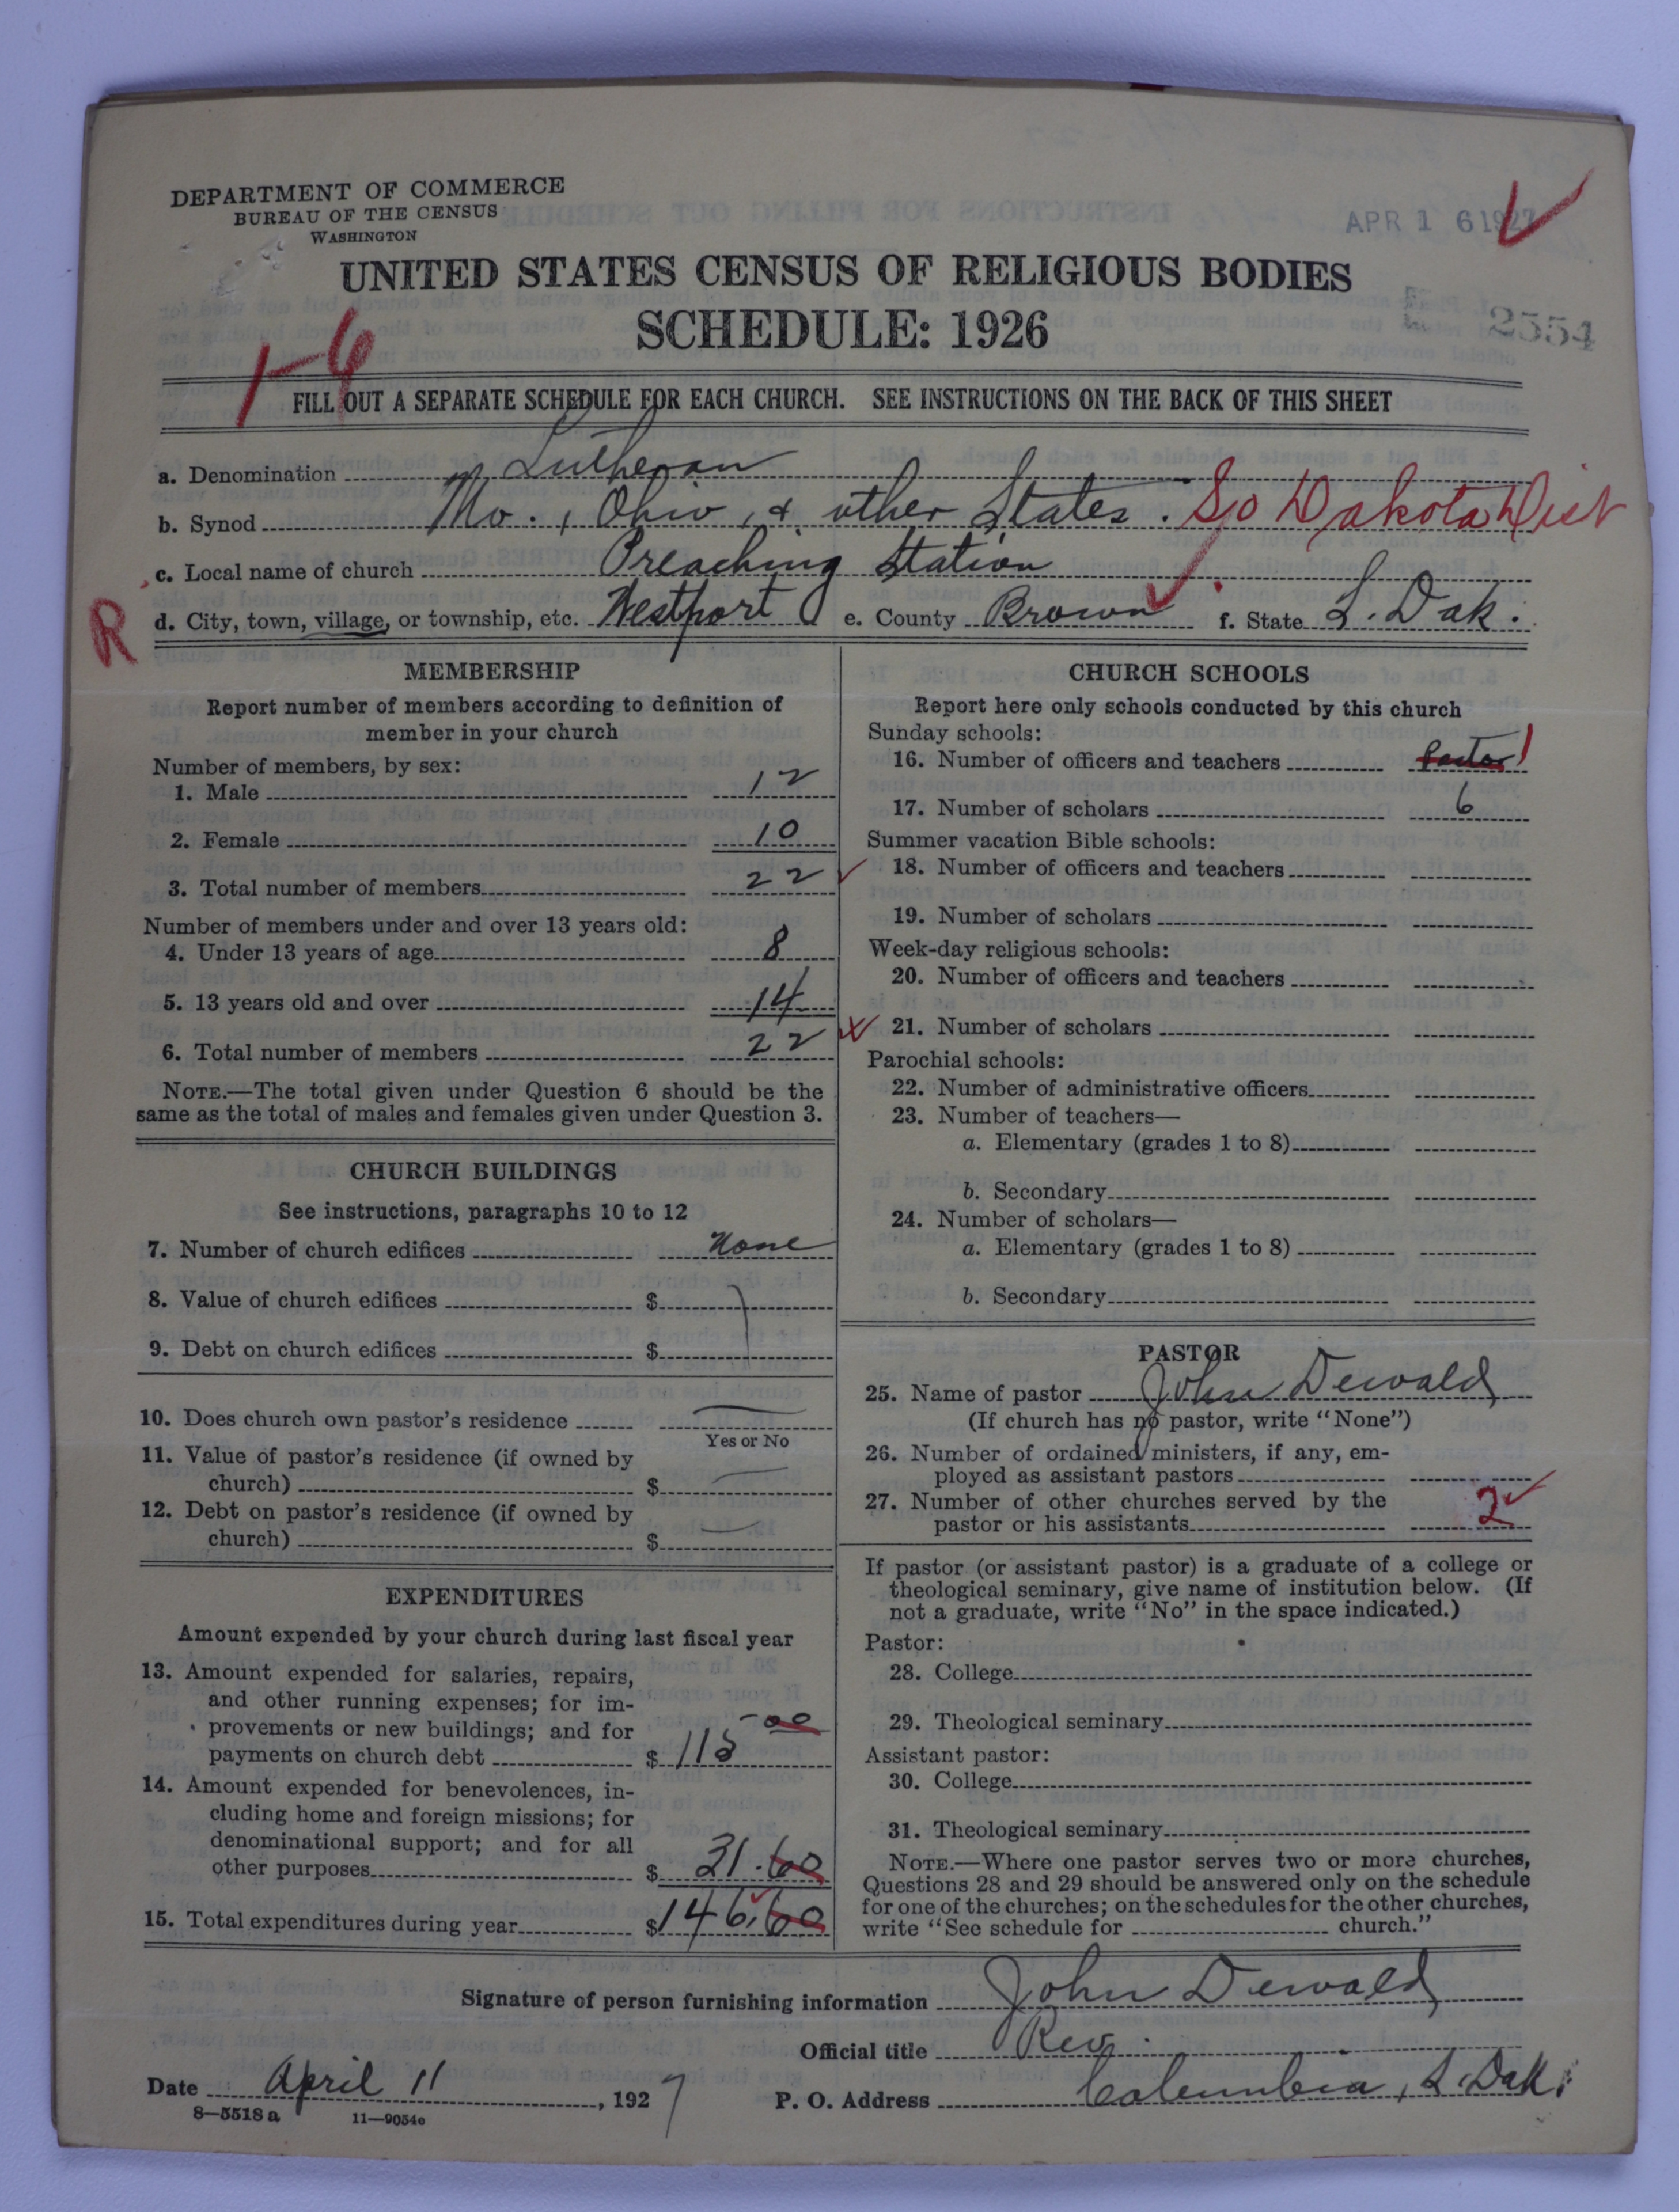 DEPARTMENT OF COMMERCE
BUREAU OF THE CENSUS
WASHINGTON
APR 16 1927
UNITED STATES CENSUS OF RELIGIOUS BODIES
SCHEDULE: 1926
2554
1-6
FILL OUT A SEPARATE SCHEDULE FOR EACH CHURCH. SEE INSTRUCTIONS ON THE BACK OF THIS SHEET
a. Denomination Lutheran
b. Synod Mo., Ohio, & other States. So Dakota Dist
c. Local name of church Preaching Station
R
d. City, town, village, or township, etc. Westport e. County Brown f. State S. Dak.
MEMBERSHIP
Report number of members according to definition of
member in your church
Number of members, by sex:
1. Male 12
2. Female 10
3. Total number of members 22
Number of members under and over 13 years old:
4. Under 13 years of age 8
5. 13 years old and over 14
6. Total number of members 22
NOTE.—The total given under Question 6 should be the
same as the total of males and females given under Question 3.
CHURCH BUILDINGS
See instructions, paragraphs 10 to 12
7. Number of church edifices None
8. Value of church edifices $
9. Debt on church edifices $
10. Does church own pastor's residence
Yes or No
11. Value of pastor's residence (if owned by
church) $
12. Debt on pastor's residence (if owned by
church) $
EXPENDITURES
Amount expended by your church during last fiscal year
13. Amount expended for salaries, repairs,
and other running expenses; for im-
provements or new buildings; and for
payments on church debt $ 115 00
14. Amount expended for benevolences, in-
cluding home and foreign missions; for
denominational support; and for all
other purposes $ 31.60
15. Total expenditures during year $ 146.60
CHURCH SCHOOLS
Report here only schools conducted by this church
Sunday schools:
16. Number of officers and teachers Pastor 1
17. Number of scholars 6
Summer vacation Bible schools:
18. Number of officers and teachers
19. Number of scholars
Week-day religious schools:
20. Number of officers and teachers
21. Number of scholars
Parochial schools:
22. Number of administrative officers
23. Number of teachers—
a. Elementary (grades 1 to 8)
b. Secondary
24. Number of scholars—
a. Elementary (grades 1 to 8)
b. Secondary
PASTOR
25. Name of pastor John Dewald
(If church has no pastor, write "None")
26. Number of ordained ministers, if any, em-
ployed as assistant pastors
27. Number of other churches served by the
pastor or his assistants 2
If pastor (or assistant pastor) is a graduate of a college or
theological seminary, give name of institution below. (If
not a graduate, write "No" in the space indicated.)
Pastor:
28. College
29. Theological seminary
Assistant pastor:
30. College
31. Theological seminary
NOTE.—Where one pastor serves two or more churches,
Questions 28 and 29 should be answered only on the schedule
for one of the churches; on the schedules for the other churches,
write "See schedule for church."
Signature of person furnishing information John Dewald
Official title Rev.
Date April 11, 1927 P. O. Address Columbia, S. Dak.
8—5518a 11—9054e